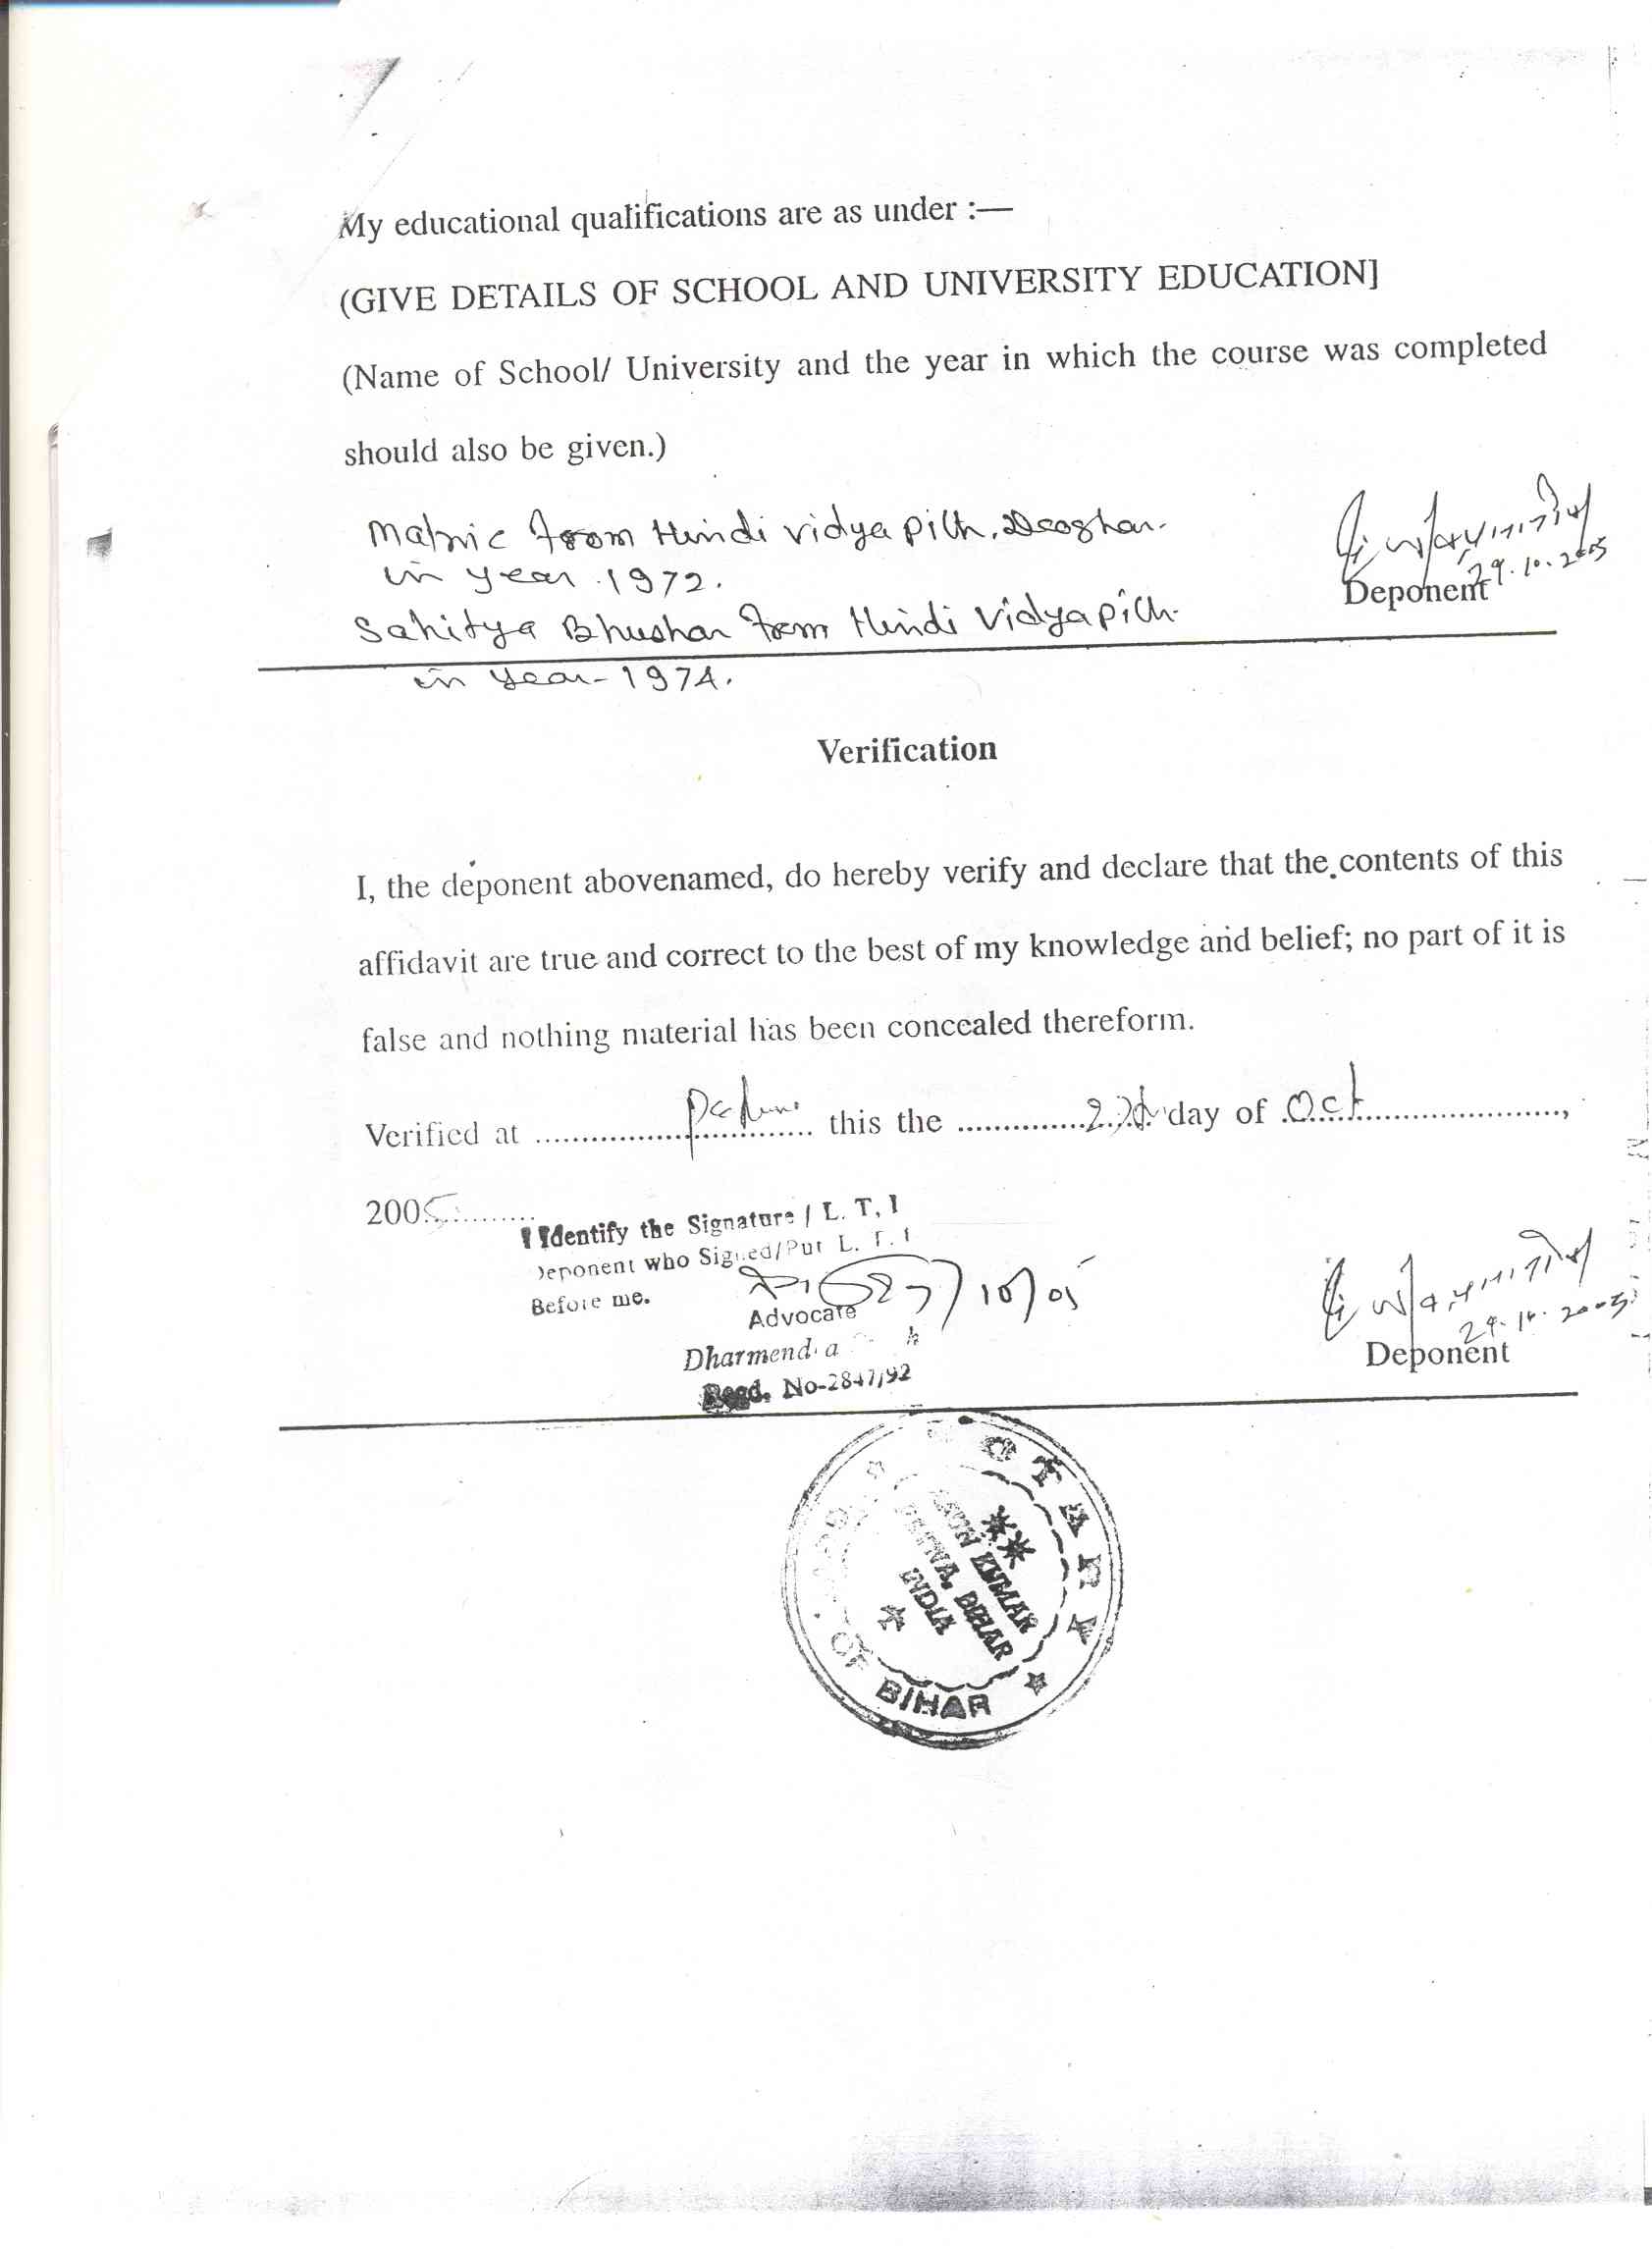 My educational qualifications are as under :—
(GIVE DETAILS OF SCHOOL AND UNIVERSITY EDUCATION]
(Name of School/ University and the year in which the course was completed
should also be given.)
Matric from Hindi vidyapith, Deoghar.
in year 1972.
Sahitya Bhushan from Hindi Vidyapith
in year - 1974.
29.10.2005
Deponent
Verification
I, the deponent abovenamed, do hereby verify and declare that the contents of this
affidavit are true and correct to the best of my knowledge and belief; no part of it is
false and nothing material has been concealed thereform.
Verified at ........ this the ........ day of Oct ........,
2005........
I Identify the Signature / L. T, I
Deponent who Signed/Put L. T. I
Before me.
27/10/05
Advocate
Regd. No-2847/92
29.10.2005
Deponent
NOTARY
KUMAR
PATNA, BIHAR
INDIA
OF BIHAR